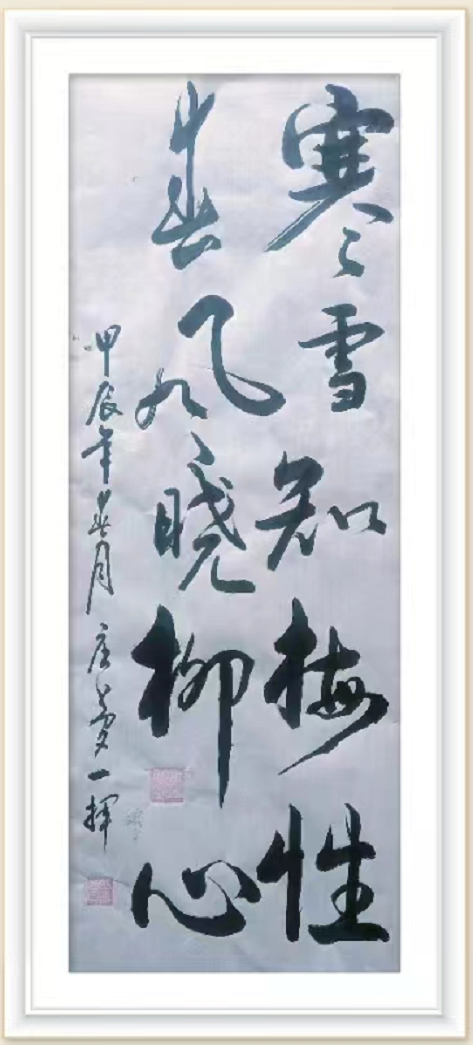 寒雪知梅性
春风晓柳心
甲辰年春月 庄梦一挥